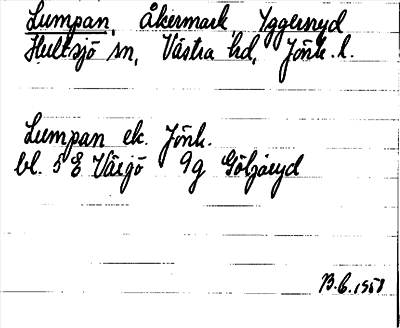 Lumpan, Åkermark, Yggersryd
Hultsjö sn, Västra hd, Jönk. l.
Lumpan ek. Jönk.
bl. 5 E Värjö 9g Göljaryd
B.C. 1958